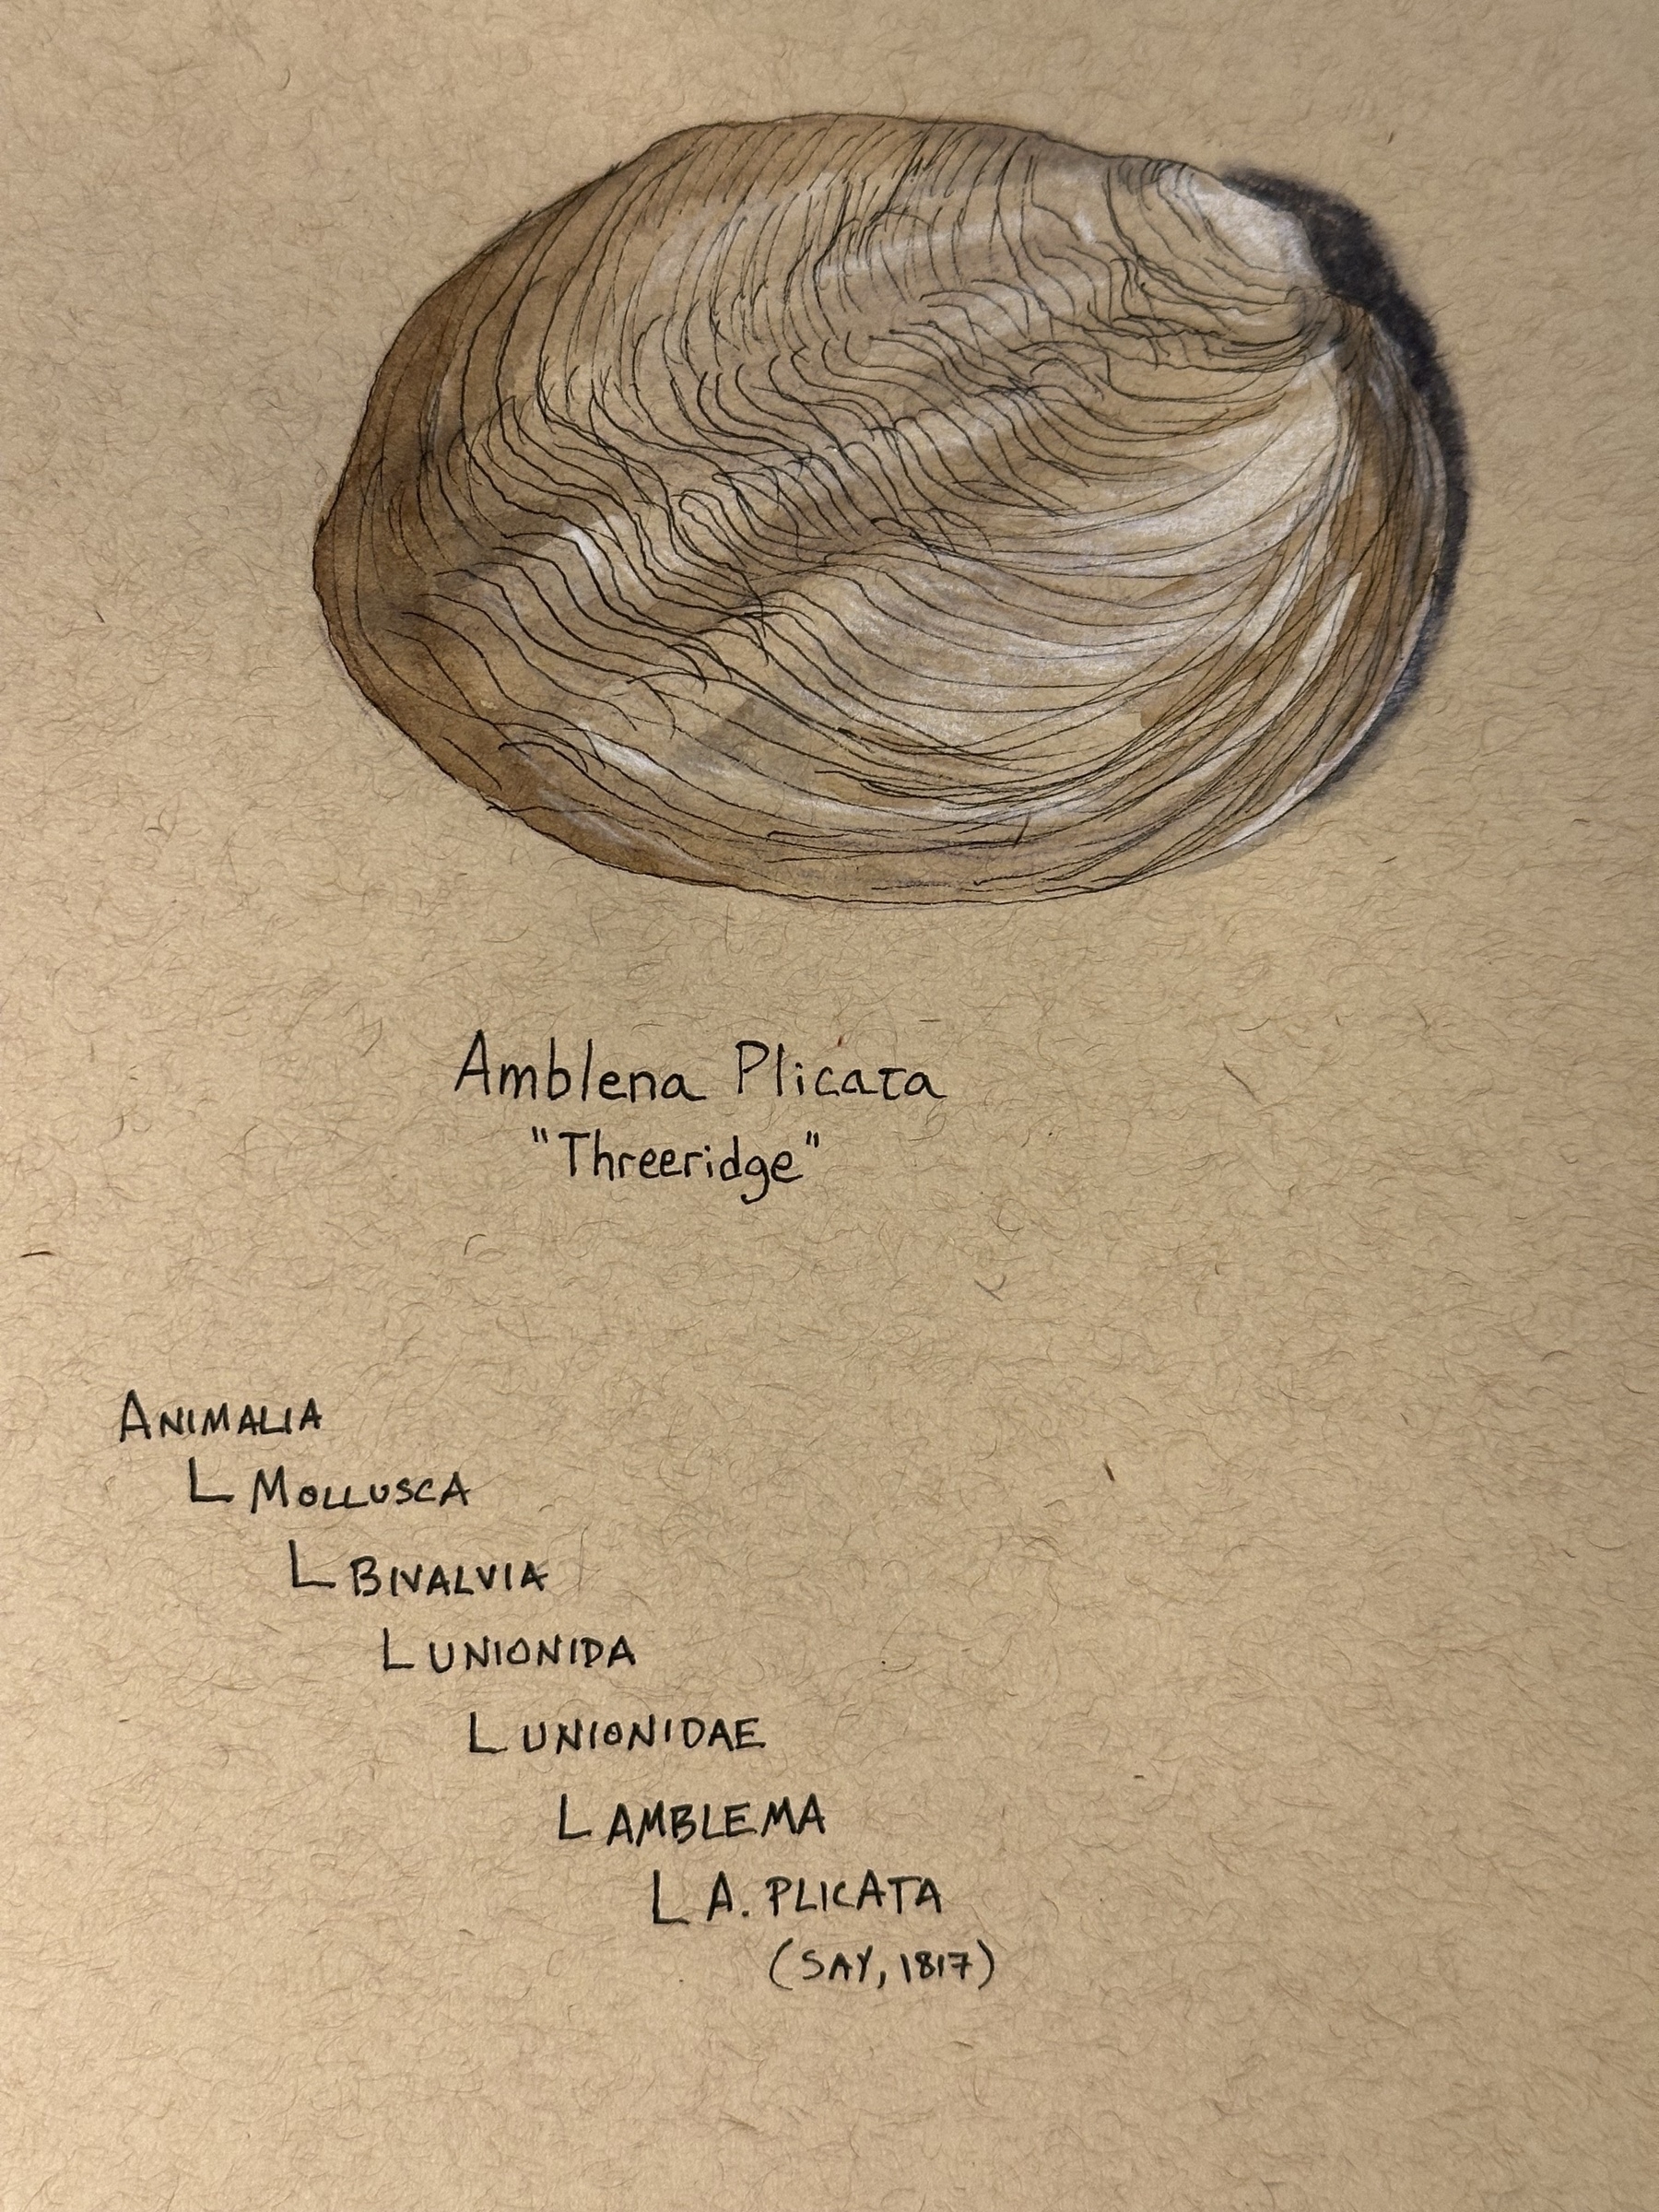 Amblena Plicata
"Threeridge"
ANIMALIA
L MOLLUSCA
L BIVALVIA
L UNIONIDA
L UNIONIDAE
L AMBLEMA
L A. PLICATA
(SAY, 1817)